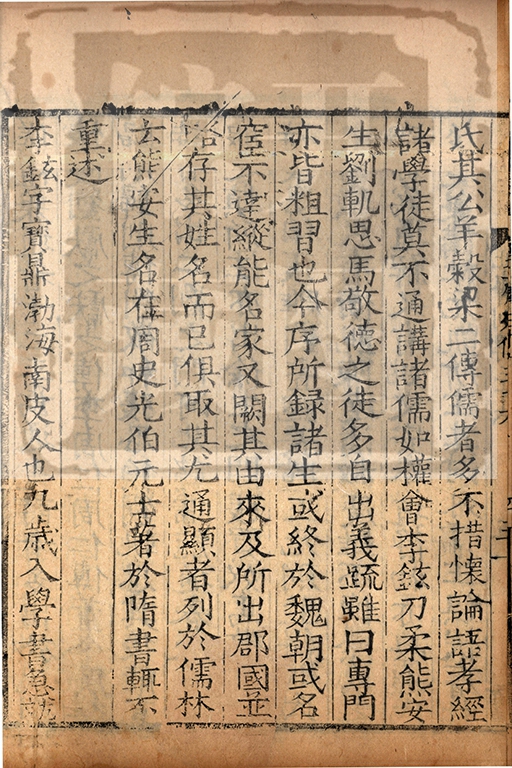 氏其公羊穀梁二傳儒者多不措懷論語孝經
諸學徒莫不通講諸儒如權會李鉉刀柔熊安
生劉軌思馬敬德之徒多自出義疏雖曰專門
亦皆粗習也今序所錄諸生或終於魏朝或名
宦不達縱能名家又闕其由來及所出郡國並
略存其姓名而已俱取其尤通顯者列於儒林
云熊安生名在周史光伯元士著於隋書輒不
重述
李鉉字寶鼎渤海南皮人也九歲入學書急就